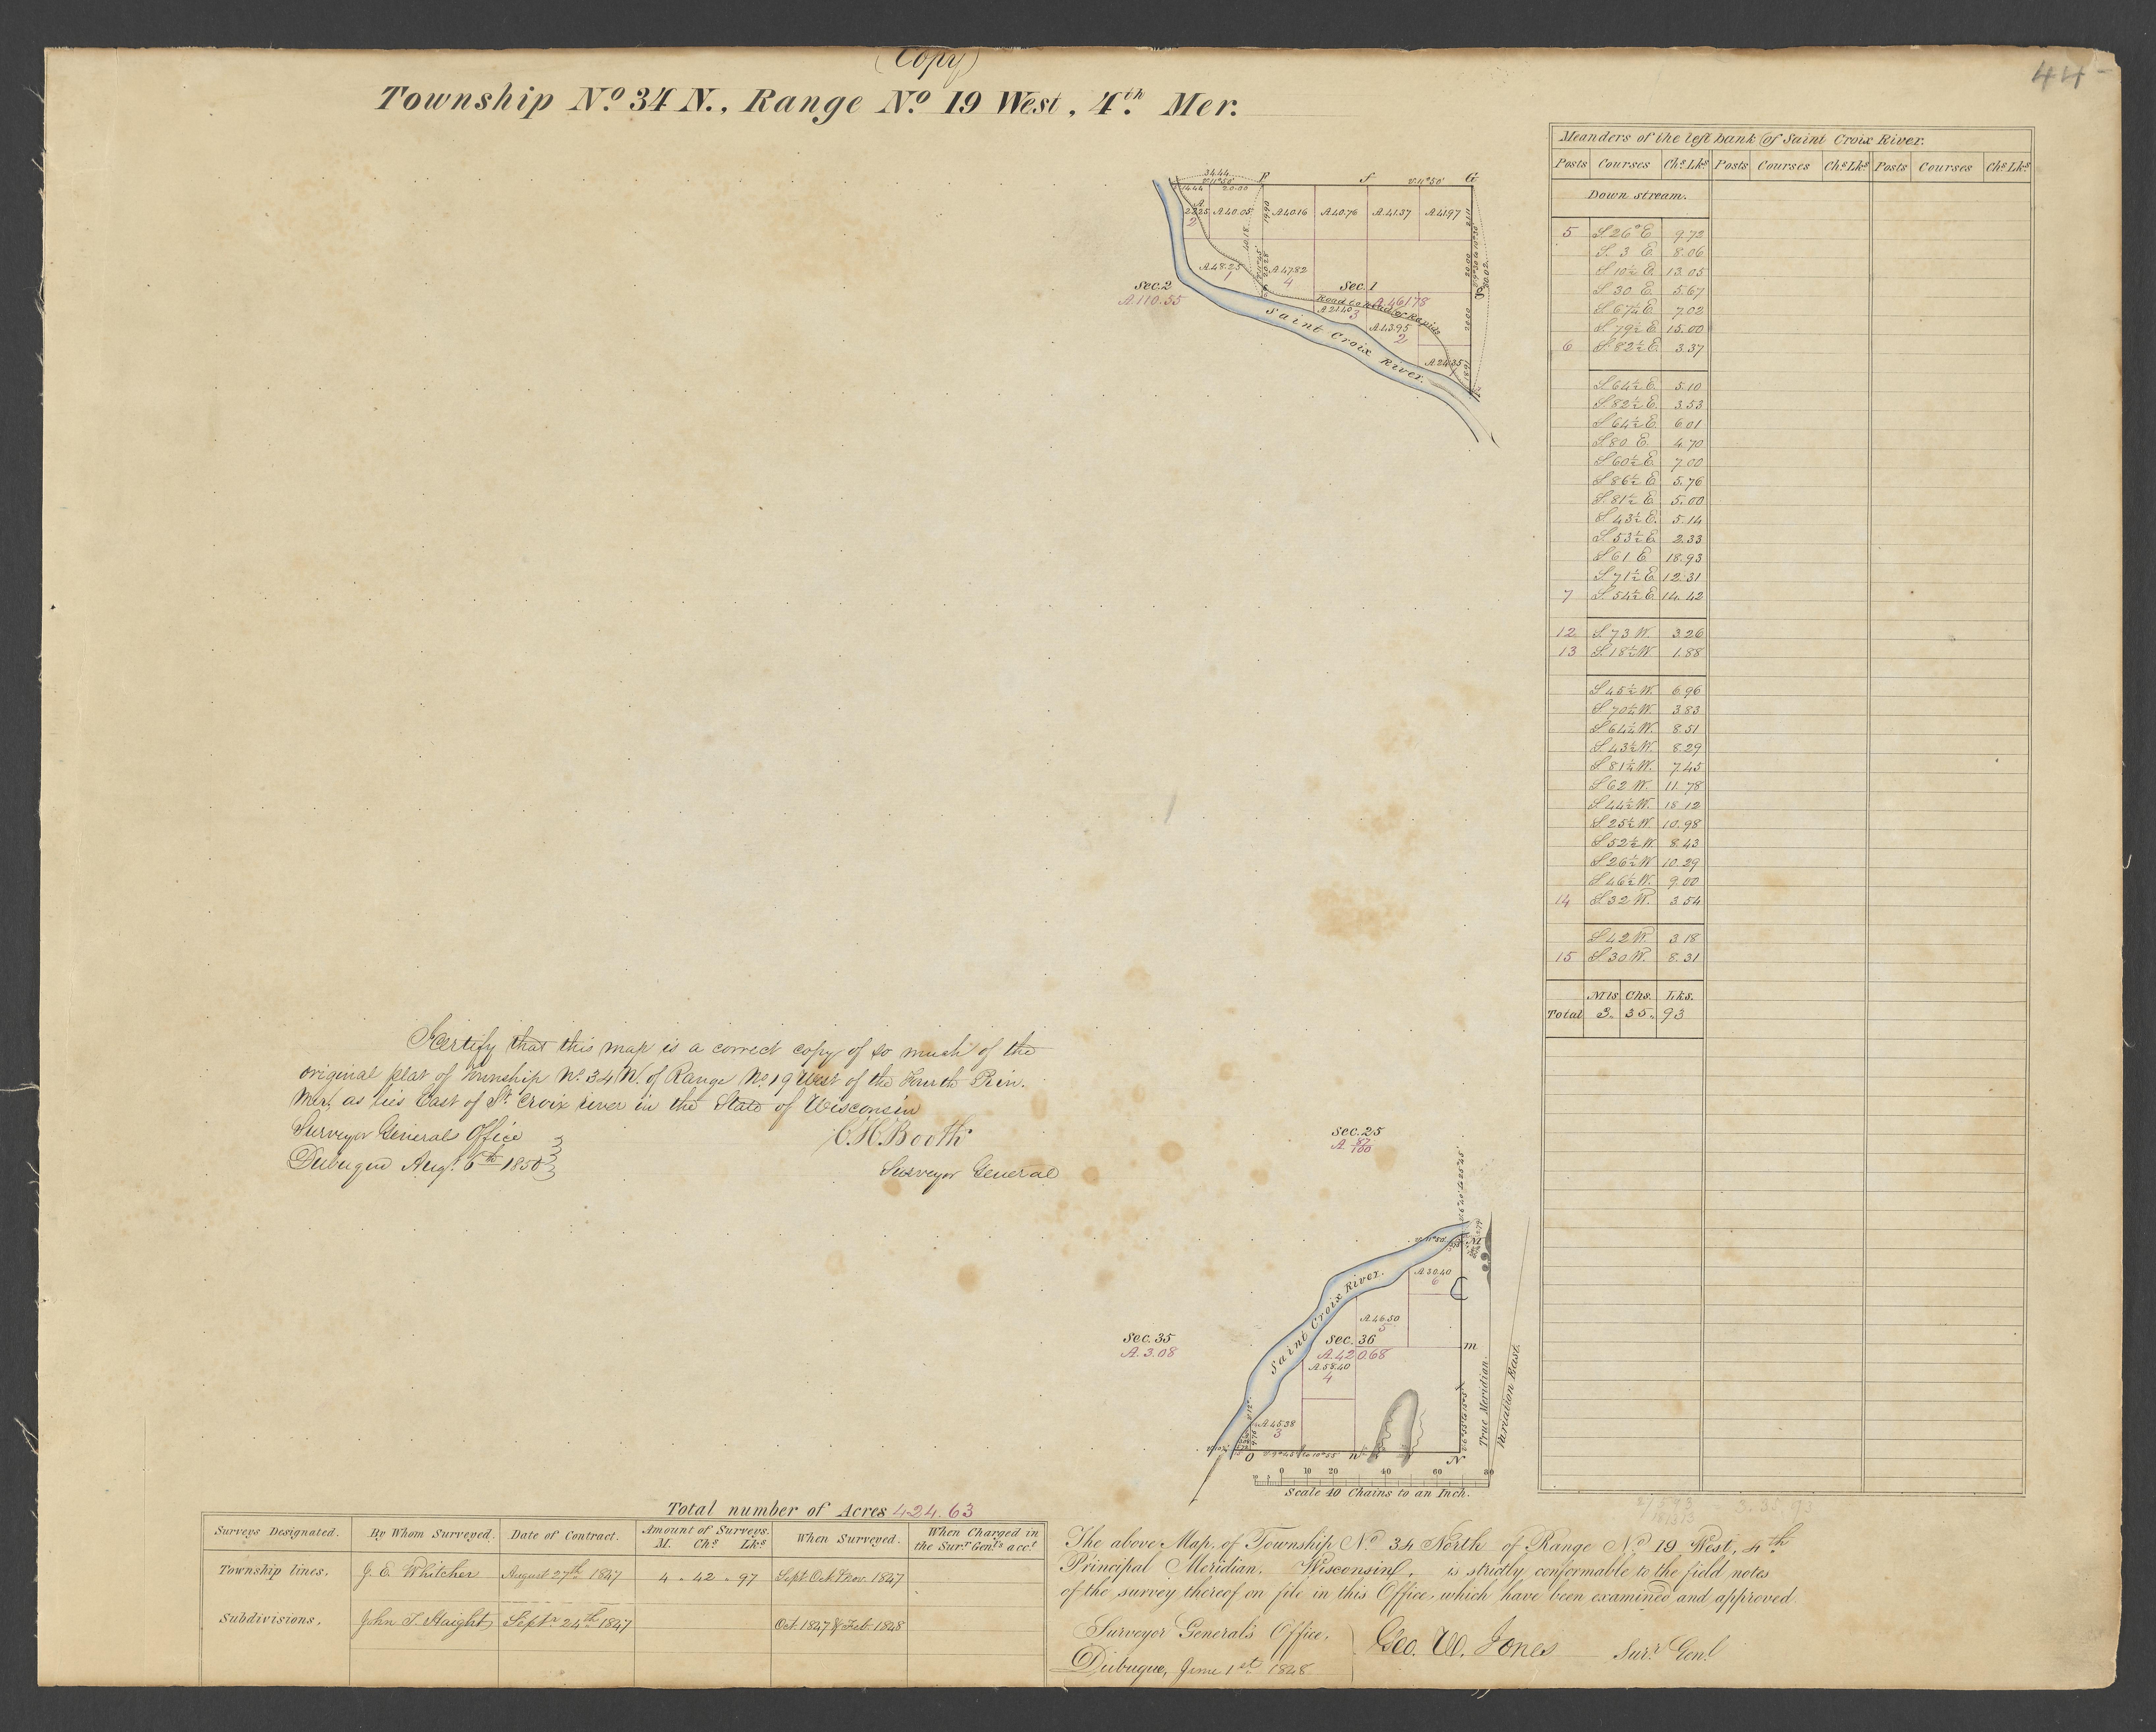 (Copy)
44-
Township No. 34 N., Range No. 19 West, 4th. Mer.
34.44
V.11°50'
14.44 20.00
F
f
V.11°50'
G
A 22.25
2
A 40.05
19.90
A 40.16
A 40.76
A 41.37
A 41.97
40.18
A 48.25
1
20.28
A 47.82
4
20.00
Sec. 2
A 110.55
Sec. 1
A 461.78
Road to head of Rapids
A 21.40
3
A 43.95
2
20.00
80.02
A 24.35
1
18.91
Saint Croix River.
Meanders of the left bank of Saint Croix River.
Posts Courses Chs Lks Posts Courses Chs Lks Posts Courses Chs Lks
Down stream.
5 S 26° E 9.72
S. 3 E. 8.06
S 10½ E. 13.05
S 30 E. 5.67
S 67¼ E. 7.02
S. 79½ E 15.00
6 S. 82½ E. 3.37
S 64½ E. 5.10
S. 82½ E. 3.53
S 64½ E. 6.01
S. 80 E. 4.70
S 60½ E. 7.00
S 86½ E. 5.76
S. 81½ E. 5.00
S. 43½ E. 5.14
S. 53½ E 2.33
S 61 E 18.93
S. 71½ E 12.31
7 S. 54½ E 14.42
12 S. 73 W. 3.26
13 S. 18½ W 1.88
S 45½ W. 6.96
S. 70¼ W. 3.83
S 64¼ W. 8.51
S. 43½ W. 8.29
S 81¼ W. 7.45
S 62 W. 11.78
S. 44½ W. 18.12
S. 25½ W 10.98
S 52½ W 8.43
S 26½ W 10.29
S. 46½ W. 9.00
14 S. 32 W. 3.54
S. 42 W. 3.18
15 S. 30 W. 8.31
Mls Chs. Lks.
Total 3. 35. 93
I certify that this map is a correct copy of so much of the
original plat of Township No. 34 N. of Range No. 19 West of the Fourth Prin.
Mer. as lies East of St. Croix river in the State of Wisconsin
Surveyor Generals Office
Dubuque Aug. 6th 1850
C. H. Booth
Surveyor General
Sec. 25
A 87/100
Sec. 35
A. 3.08
Saint Croix River.
M
A 30.40
6
A. 46.50
5
Sec. 36
A. 420.68
m
A. 58.40
4
A 45.38
3
O
n
N
True Meridian.
Variation East.
0 10 20 40 60 80
Scale 40 Chains to an Inch.
3.35.93
Total number of Acres 424.63
Surveys Designated. By Whom Surveyed. Date of Contract. Amount of Surveys. M. Chs Lks When Surveyed. When Charged in the Surr Genls acct
Township lines. J. E. Whitcher August 27th 1847 4 . 42 . 97 Sept Oct & Nov. 1847
Subdivisions. John T. Haight Septr 24th 1847 Oct. 1847 & Feb. 1848
The above Map, of Township No. 34 North of Range No. 19 West, 4th
Principal Meridian, Wisconsin, is strictly conformable to the field notes
of the survey thereof on file in this Office, which have been examined and approved.
Surveyor General's Office,
Dubuque, June 1st 1848
Geo. W. Jones Surr. Genl.